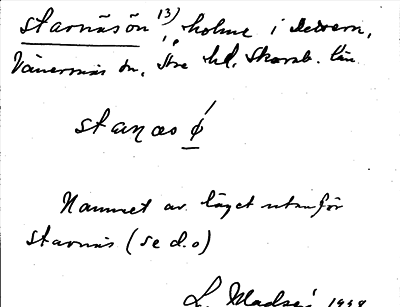 starnäsön 13), holme i Dettern,
Vänersnäs sn, Åse hd. Skarab. län
stanæs ǿ
Namnet av läget utanför
starnäs (se d.o)
L. Madsén